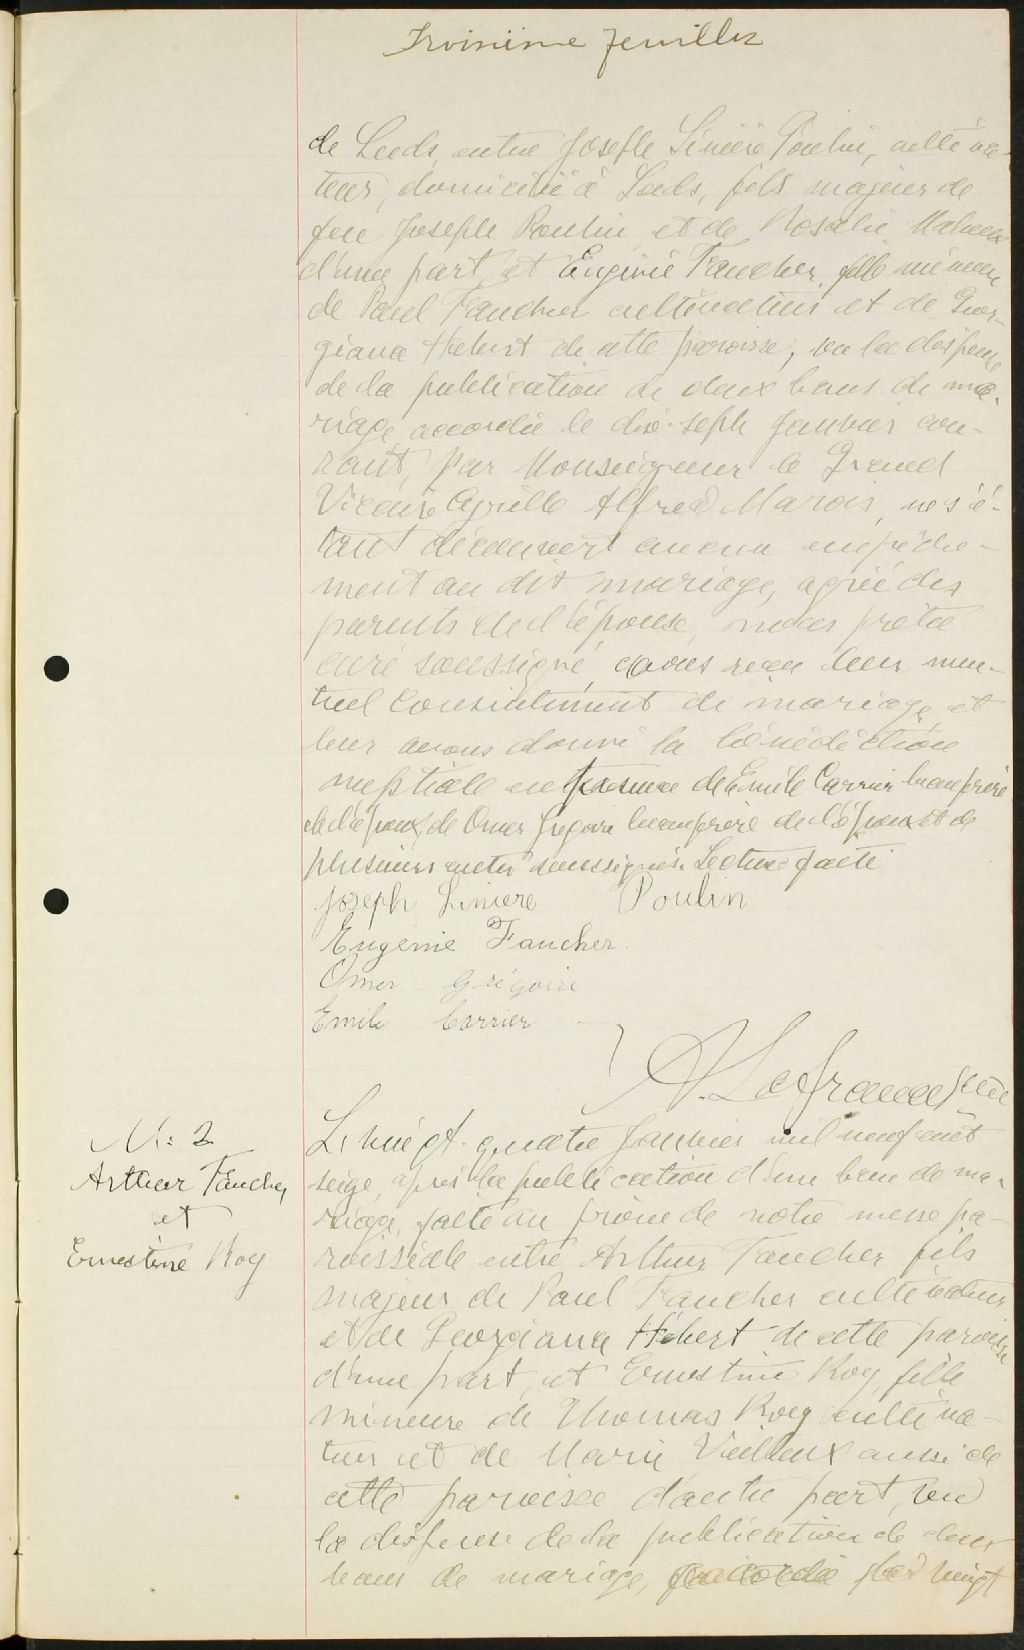 Troisième feuillet
de Leeds, entre Joseph Linière Poulin, cultiva-
teur, domicilié à Leeds, fils majeur de
feu Joseph Poulin et de Rosalie Maheux
d'une part, et Eugénie Faucher, fille mineure
de Paul Faucher cultivateur et de Geor-
giana Hébert de cette paroisse, vu la dispense
de la publication de deux bans de ma-
riage accordée le dix-sept janvier cou-
rant, par Monseigneur le Grand
Vicaire Cyrille Alfred Marois, ne s'é-
tant découvert aucun empêche-
ment au dit mariage, agréé des
parents de l'épouse, nous prêtre
curé soussigné, avons reçu leur mu-
tuel consentement de mariage et
leur avons donné la bénédiction
nuptiale en présence de Emile Carrier beaufrère
de l'époux, de Omer Grégoire beaufrère de l'époux et de
plusieurs autres soussignés. Lecture faite
Joseph Liniere Poulin
Eugénie Faucher.
Omer Grégoire
Emile Carrier
A. Lafrance, ptre
M: 2
Arthur Faucher
et
Ernestine Roy
Le vingt-quatre janvier mil neuf cent
seize, après la publication d'un ban de ma-
riage, faite au prône de notre messe pa-
roissiale entre Arthur Faucher fils
majeur de Paul Faucher cultivateur
et de Georgiana Hébert de cette paroisse
d'une part, et Ernestine Roy, fille
mineure de Thomas Roy cultiva-
teur et de Marie Veilleux aussi de
cette paroisse d'autre part, vu
la dispense de la publication de deux
bans de mariage, accordée le vingt